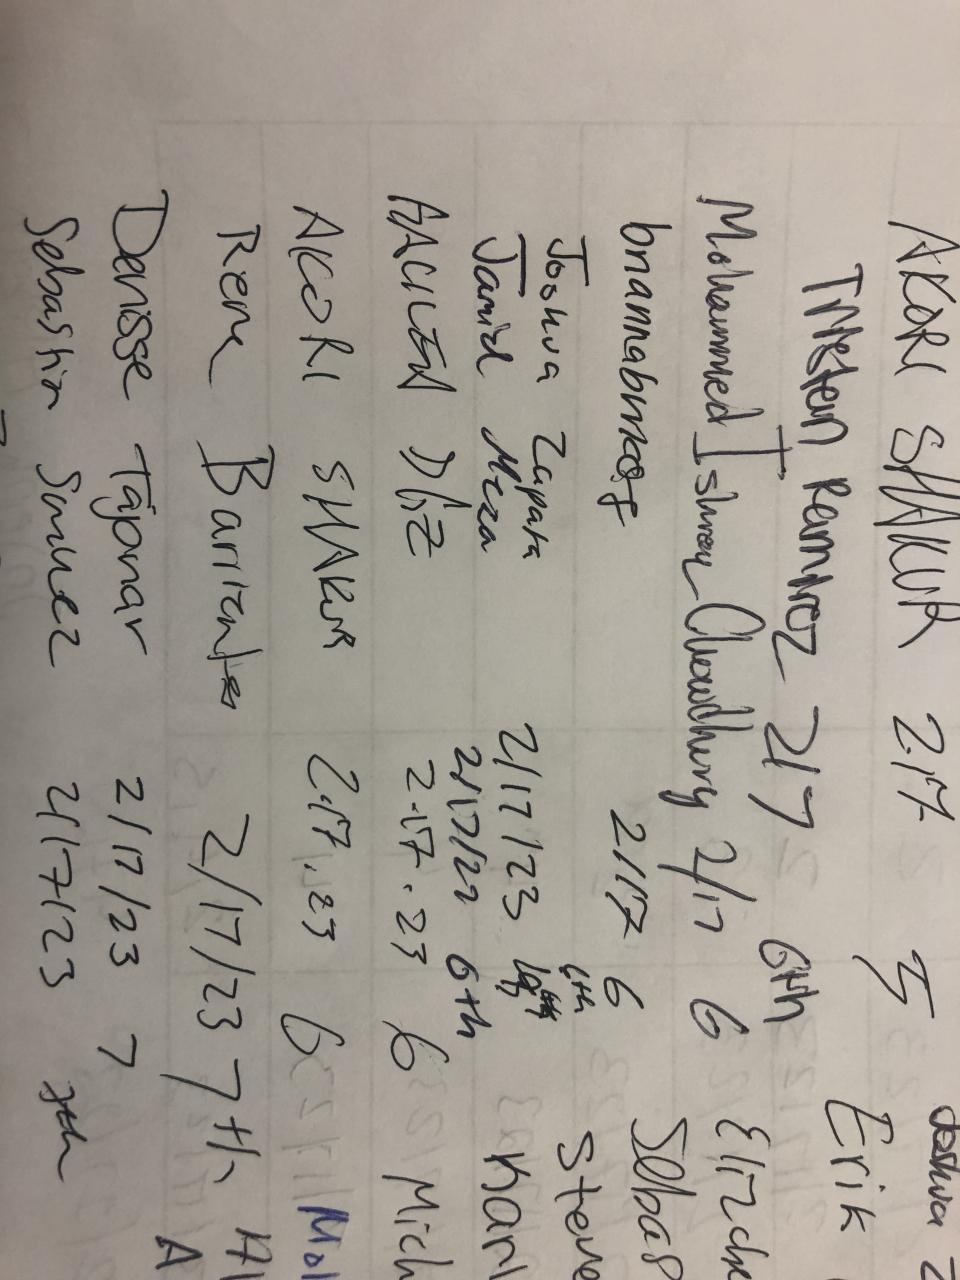 AKORI SHAKUR 2.17 5
Tristan Ramirez 2/7 6th Erik
Mohammed Ishraq Chowdhury 2/17 6 Elizche
2/17 6 Sebas
Joshua Zapata 2/17/23 6th Steve
Jamil Meza 2/17/22 6th Karl
DIAZ 2.17.23 6 Mich
AKORI SHAKUR 2.17.23 6 Mol
Rene Barrientos 2/17/23 7th Al
Denisse Tajonar 2/17/23 7 A
Sebastian 2/17/23 7th
Joshua Z